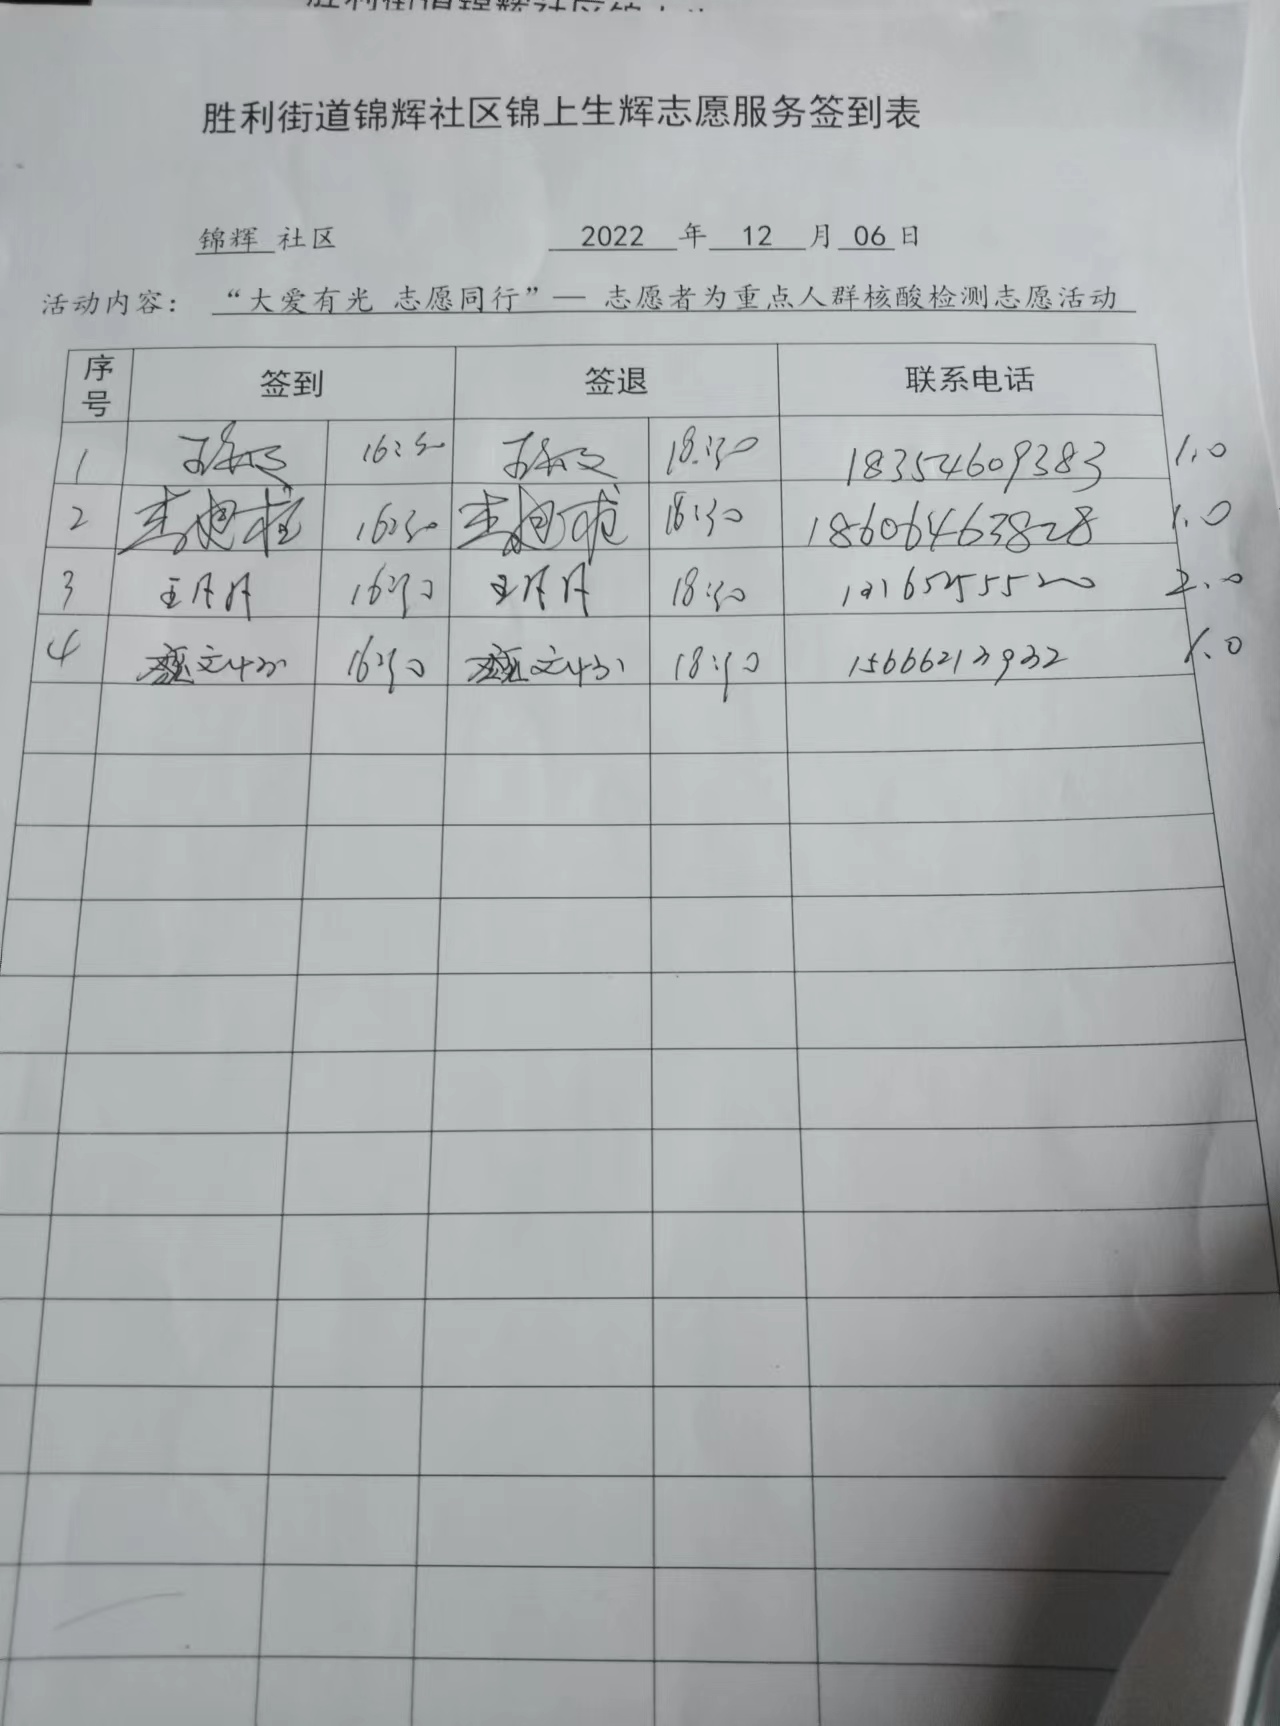 胜利街道锦辉社区锦上生辉志愿服务签到表
锦辉 社区 2022 年 12 月 06 日
活动内容： “大爱有光 志愿同行”— 志愿者为重点人群核酸检测志愿活动
序号 签到 签退 联系电话
1 16:30 18:30 18354609383 1.0
2 16:30 18:30 18606463828 1.0
3 王月月 16:30 王月月 18:30 2.0
4 16:30 18:30 15666213932 1.0